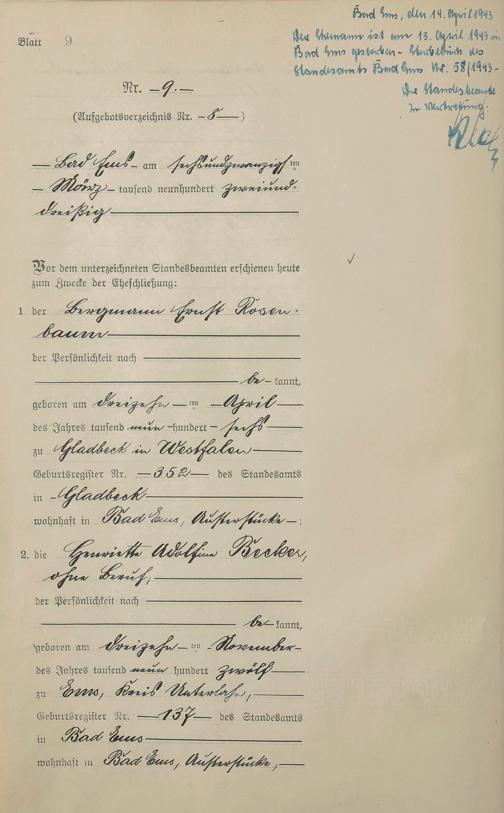 Bad Ems, den 14. April 1943
Der Ehemann ist am 13. April 1943 in
Bad Ems gestorben - Sterbebuch des
Standesamts Bad Ems Nr. 58/1943 -
Der Standesbeamte
In Vertretung:
Blatt 9
Nr. 9.
(Aufgebotsverzeichnis Nr. 8)
Bad Ems am sechsundzwanzigsten
März tausend neunhundert zweiund-
dreißig
Vor dem unterzeichneten Standesbeamten erschienen heute
zum Zwecke der Eheschließung:
1. der Bergmann Ernst Rosen-
baum
der Persönlichkeit nach
be kannt,
geboren am dreizehn ten April
des Jahres tausend neun hundert sechs
zu Gladbeck in Westfalen
Geburtsregister Nr. 352 des Standesamts
in Gladbeck
wohnhaft in Bad Ems, Austerstücke
2. die Henriette Adolfine Becker,
ohne Beruf,
der Persönlichkeit nach
be kannt,
geboren am dreizehn ten November
des Jahres tausend neun hundert zwölf
zu Ems, Kreis Unterlahn,
Geburtsregister Nr. 137 des Standesamts
in Bad Ems
wohnhaft in Bad Ems, Austerstücke,